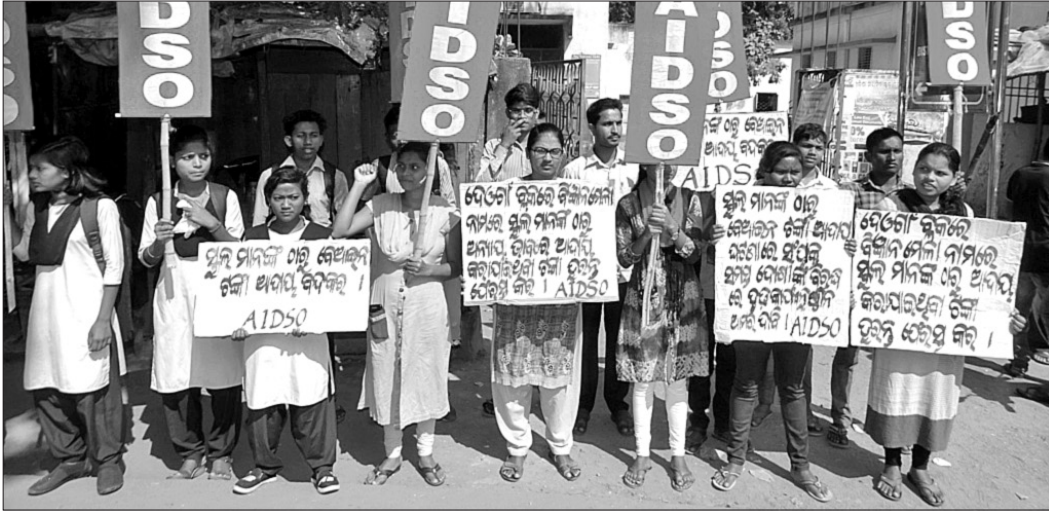 AIDSO
AIDSO
AIDSO
AIDSO
AIDSO
AIDSO
ସ୍କୁଲ ମାନଙ୍କ ଠାରୁ ବେଆଇନ
ଟଙ୍କା ଆଦାୟ ବନ୍ଦକର ।
AIDSO
ଦେଓଗାଁ ବ୍ଲକରେ ବିଜ୍ଞାନମେଳା
ନାମରେ ସ୍କୁଲ ମାନଙ୍କ ଠାରୁ
ଅନ୍ୟାୟ ଭାବରେ ଆଦାୟ
କରାଯାଇଥିବା ଟଙ୍କା ତୁରନ୍ତ
ଫେରସ୍ତ କର । AIDSO
ମାନଙ୍କ ଠାରୁ ବେଆଇନ
ଆଦାୟ ବନ୍ଦକର
AIDS
ସ୍କୁଲ ମାନଙ୍କ ଠାରୁ
ବେଆଇନ ଟଙ୍କା ଆଦାୟ
ଘଟଣାରେ ସଂପୃକ୍ତ
ସମସ୍ତ ଦୋଷୀଙ୍କ ବିରୁଦ୍ଧ
ରେ ଦୃଢ଼କାର୍ଯ୍ୟାନୁଷ୍ଠାନ
ଆମର ଦାବି । AIDSO
ଦେଓଗାଁ ବ୍ଲକରେ
ବିଜ୍ଞାନ ମେଳା ନାମରେ
ସ୍କୁଲ ମାନଙ୍କ ଠାରୁ ଆଦାୟ
କରାଯାଇଥିବା ଟଙ୍କା
ତୁରନ୍ତ ଫେରସ୍ତ କର ।